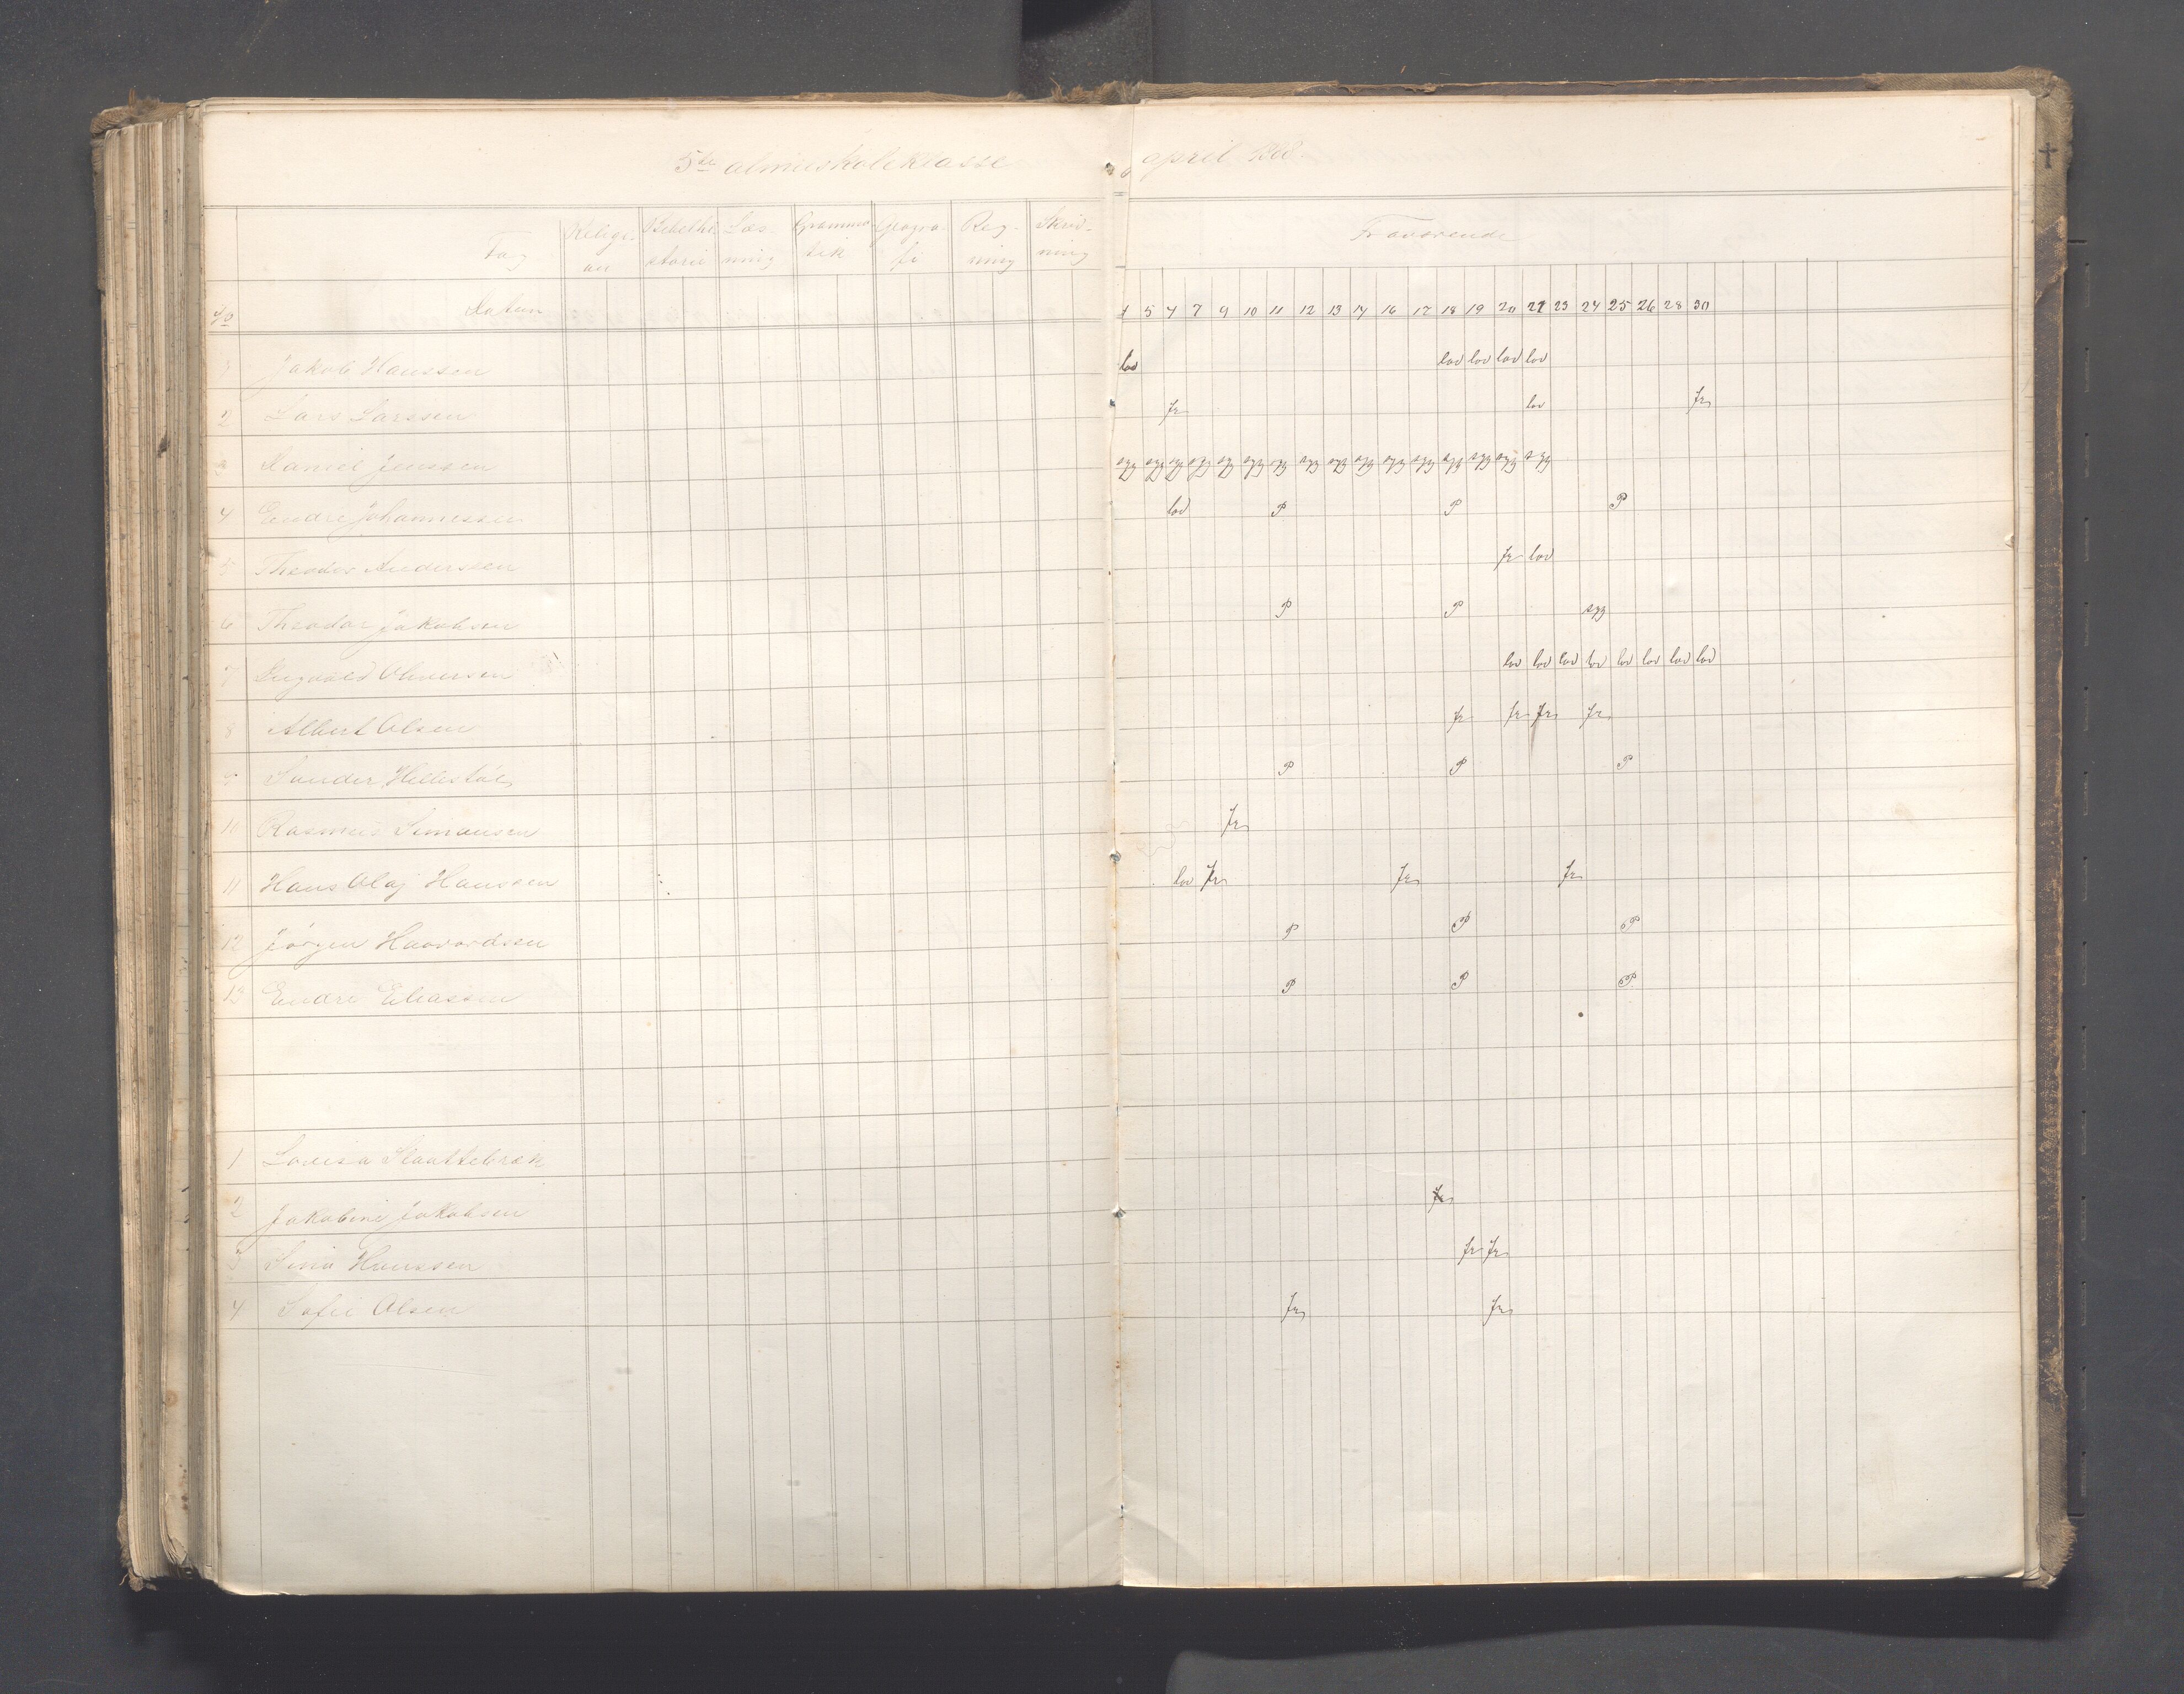 5te almueskoleklasse april 1868.
Fag Religi- Bibelhi Læs- Gramma Geogra- Reg- Skriv- Fraværende
on storie ning tik fi ning ning
No Datum 5 4 7 9 10 11 12 13 14 16 17 18 19 20 21 23 24 25 26 28 30
1 Jakob Hanssen lov lov lov lov lov
2 Lars Larssen fr lov fr
3 Daniel Jenssen syg syg syg syg syg syg syg syg syg syg syg syg syg syg syg syg
4 Endre Johannessen lov P P P
5 Theodor Anderssen fr lov
6 Theodor Jakobsen P P syg
7 Ingvald Olversen lov lov lov lov lov lov lov lov
8 Albert Olsen fr fr fr fr
9 Sander Hellestøl P P P
10 Rasmus Simonsen fr
11 Hans Olaj Hanssen lov fr fr fr
12 Jörgen Haavardsen P P P
13 Endre Eliassen P P P
1 Lovisa Slaattebræk
2 Jakobine Jakobsen fr
3 Sina Hanssen fr fr
4 Sofie Olsen fr fr